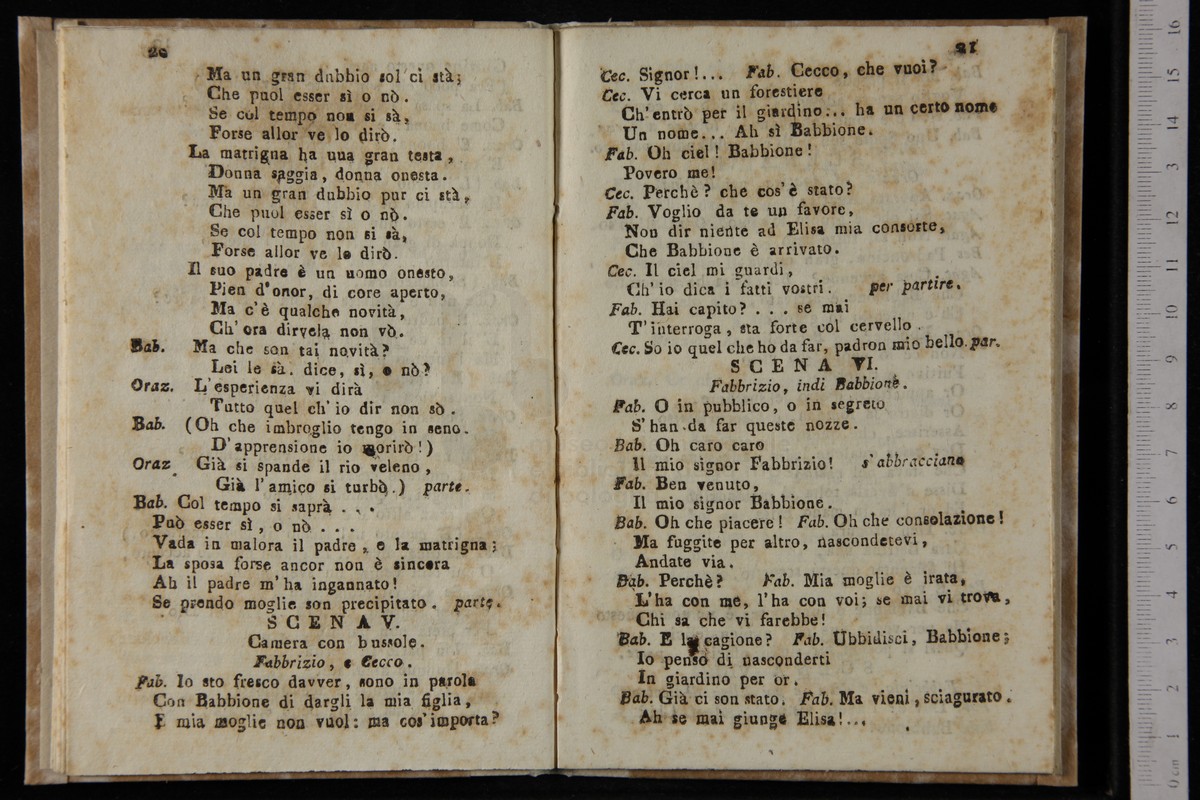 20
Ma un gran dubbio sol ci stà;
Che puol esser sì o nò.
Se col tempo non si sà,
Forse allor ve lo dirò.
La matrigna ha una gran testa,
Donna saggia, donna onesta.
Ma un gran dubbio pur ci stà,
Che puol esser sì o nò.
Se col tempo non si sà,
Forse allor ve lo dirò.
Il suo padre è un uomo onesto,
Pien d'onor, di core aperto,
Ma c'è qualche novità,
Ch'ora dirvela non vò.
Bab. Ma che son tai novità?
Lei le sà. dice, sì, o nò?
Oraz. L'esperienza vi dirà
Tutto quel ch'io dir non sò.
Bab. (Oh che imbroglio tengo in seno.
D'apprensione io morirò!)
Oraz. Già si spande il rio veleno,
Già l'amico si turbò.) parte.
Bab. Col tempo si saprà . . .
Può esser sì, o nò . . .
Vada in malora il padre, e la matrigna;
La sposa forse ancor non è sincera
Ah il padre m'ha ingannato!
Se prendo moglie son precipitato. parte.
SCENA V.
Camera con bussole.
Fabbrizio, e Cecco.
Fab. Io sto fresco davver, sono in parola
Con Babbione di dargli la mia figlia,
E mia moglie non vuol: ma cos'importa?
21
Cec. Signor!... Fab. Cecco, che vuoi?
Cec. Vi cerca un forestiere
Ch'entrò per il giardino... ha un certo nome
Un nome... Ah sì Babbione.
Fab. Oh ciel! Babbione!
Povero me!
Cec. Perchè? che cos'è stato?
Fab. Voglio da te un favore,
Non dir niente ad Elisa mia consorte,
Che Babbione è arrivato.
Cec. Il ciel mi guardi,
Ch'io dica i fatti vostri. per partire.
Fab. Hai capito? . . . se mai
T'interroga, sta forte col cervello.
Cec. So io quel che ho da far, padron mio bello. par.
SCENA VI.
Fabbrizio, indi Babbione.
Fab. O in pubblico, o in segreto
S'han da far queste nozze.
Bab. Oh caro caro
Il mio signor Fabbrizio! s'abbracciano
Fab. Ben venuto,
Il mio signor Babbione.
Bab. Oh che piacere! Fab. Oh che consolazione!
Ma fuggite per altro, nascondetevi,
Andate via.
Bab. Perchè? Fab. Mia moglie è irata,
L'ha con me, l'ha con voi; se mai vi trova,
Chi sa che vi farebbe!
Bab. E la cagione? Fab. Ubbidisci, Babbione;
Io penso di nasconderti
In giardino per or.
Bab. Già ci son stato. Fab. Ma vieni, sciagurato.
Ah se mai giunge Elisa!...
0 cm 1 2 3 4 5 6 7 8 9 10 11 12 13 14 15 16